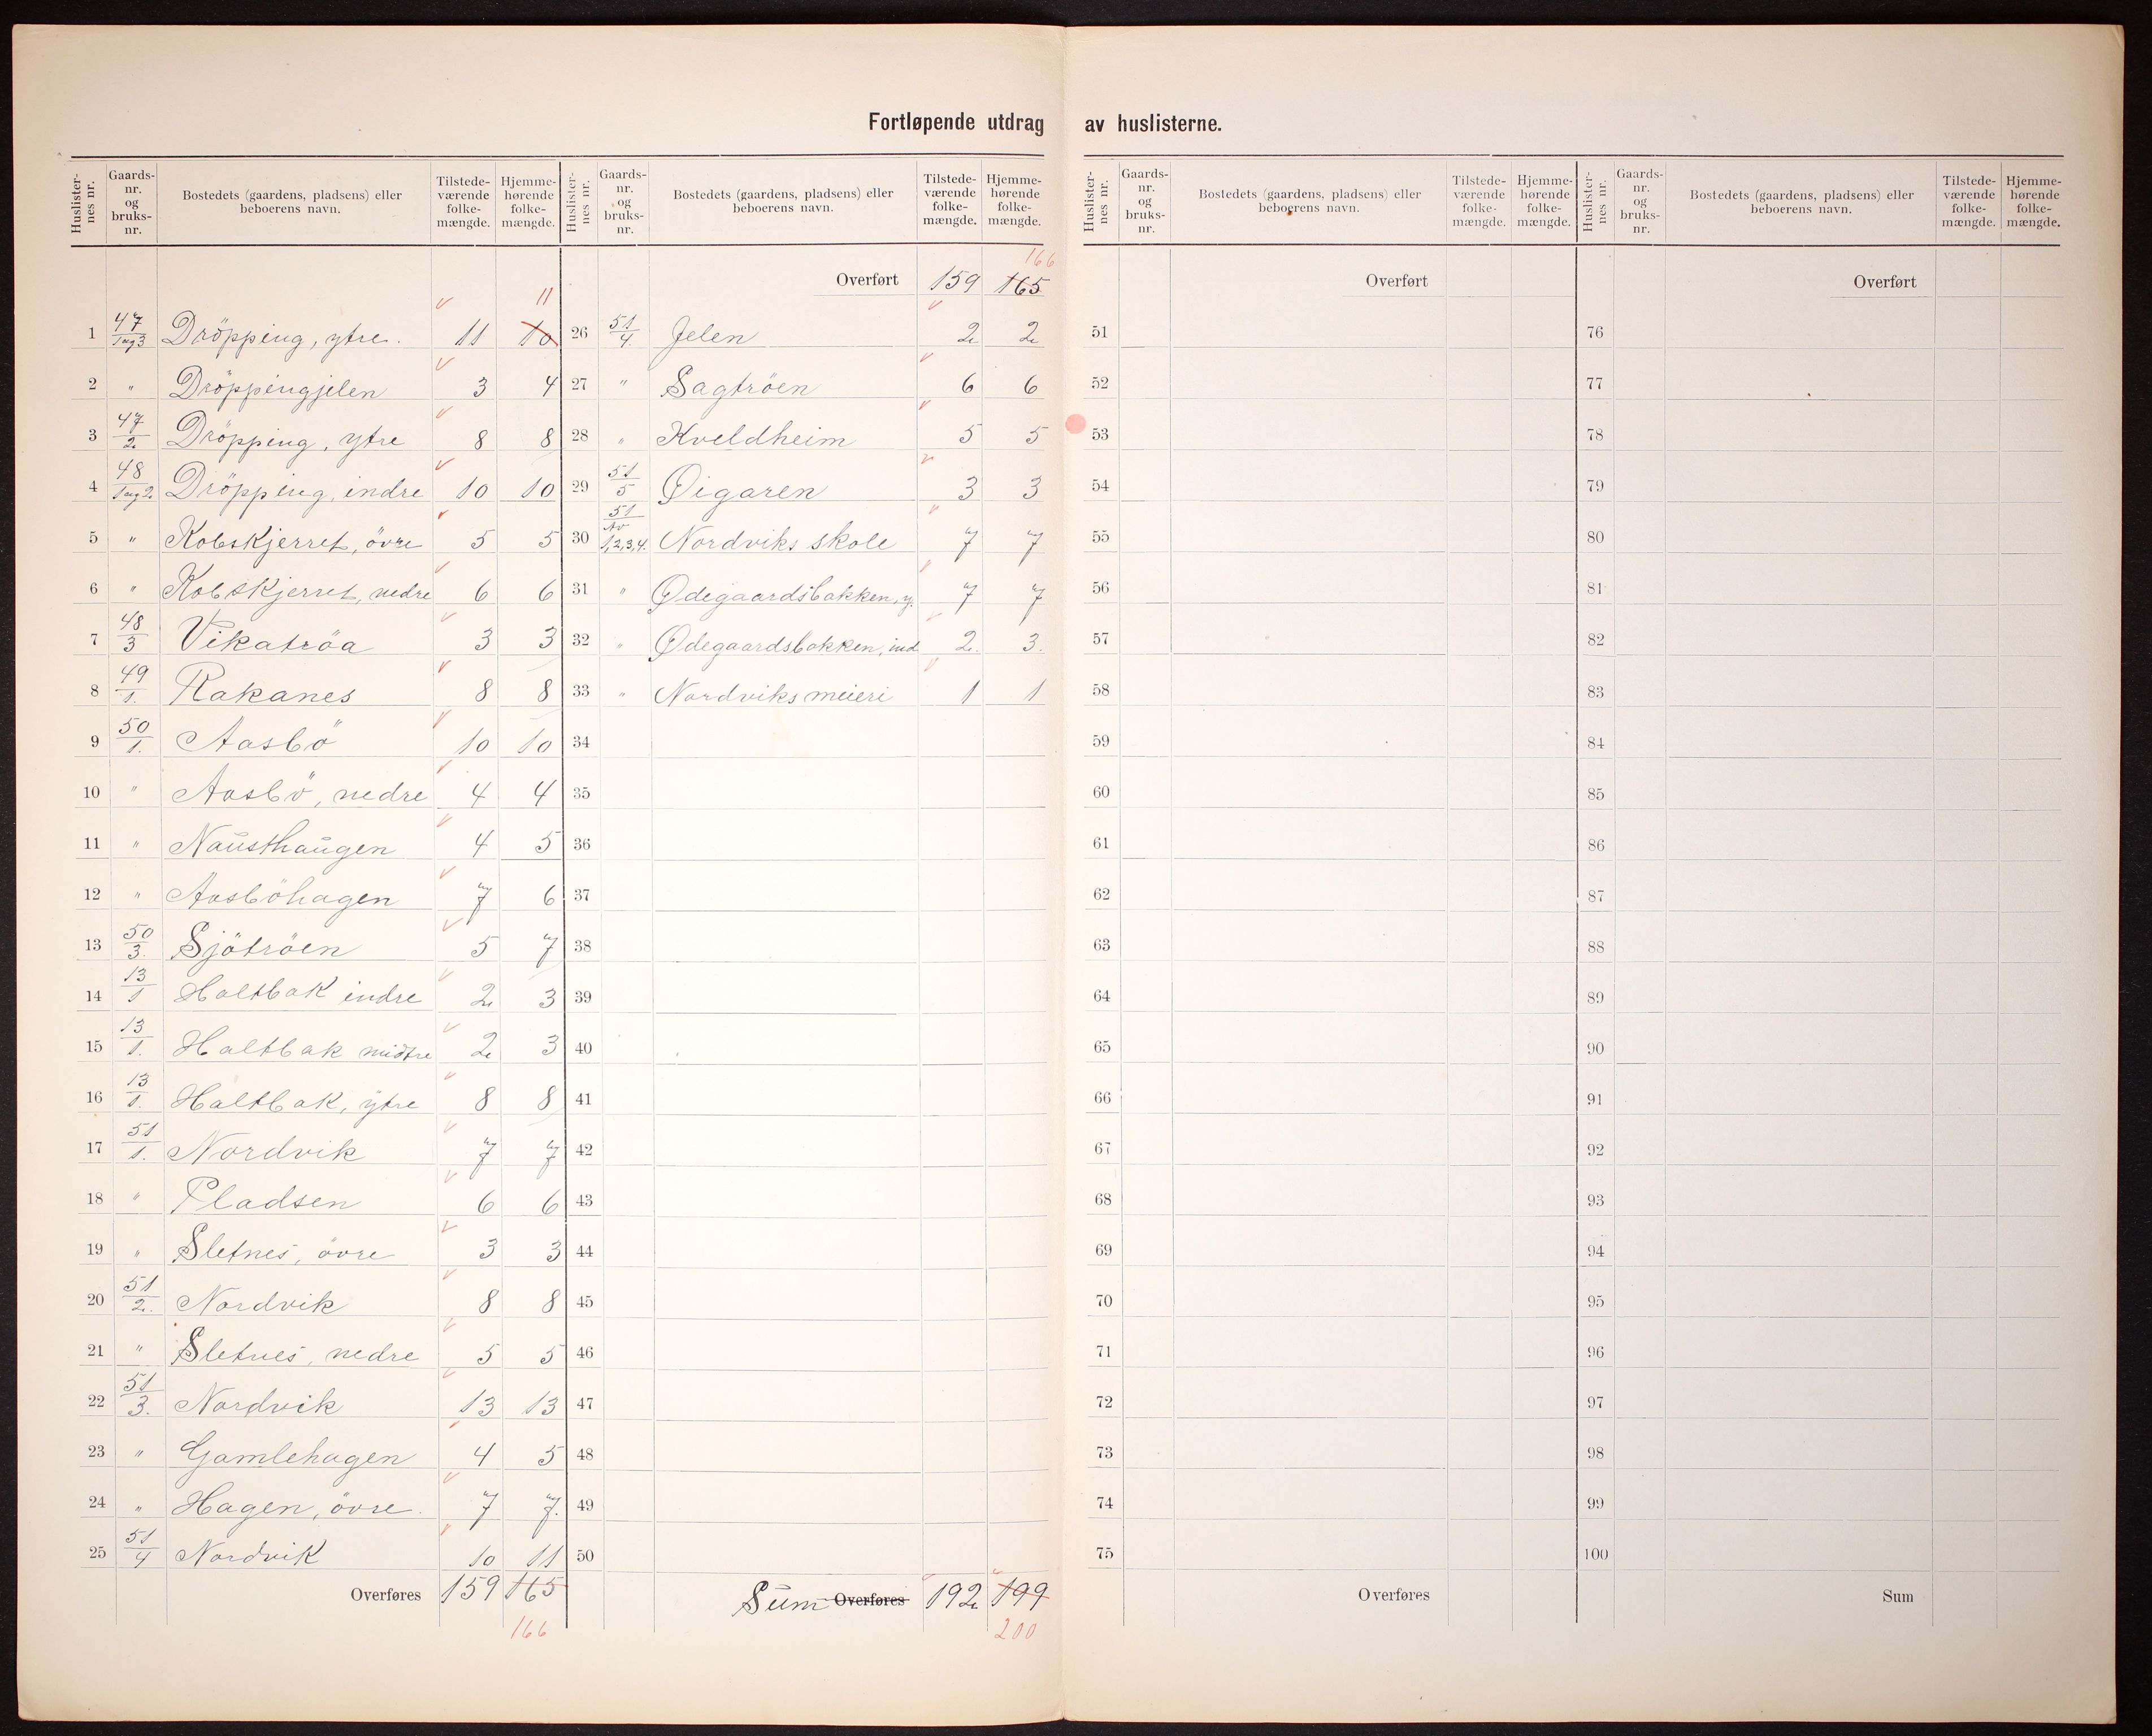 Fortløpende utdrag av huslisterne.
Huslisternes nr. | Gaards-nr. og bruks-nr. | Bostedets (gaardens, pladsens) eller beboerens navn. | Tilstedeværende folkemængde. | Hjemmehørende folkemængde.
1 47/1 og 3 Dröpping, ytre. 11 10 11
2 " Dröppingjelen 3 4
3 47/2 Dröpping, ytre 8 8
4 48/1 og 2 Dröpping, indre 10 10
5 " Kobskjerret, övre 5 5
6 " Kobskjerret, nedre 6 6
7 48/3 Vikatröa 3 3
8 49/1. Rakanes 8 8
9 50/1. Aasbö 10 10
10 " Aasbö, nedre 4 4
11 " Nausthaugen 4 5
12 " Aasböhagen 7 6
13 50/3. Sjötröen 5 7
14 13/1 Haltbak indre 2 3
15 13/1. Haltbak midtre 2 3
16 13/1. Haltbak, ytre 8 8
17 51/1. Nordvik 7 7
18 " Pladsen 6 6
19 " Sletnes, övre 3 3
20 51/2. Nordvik 8 8
21 " Sletnes, nedre 5 5
22 51/3. Nordvik 13 13
23 " Gamlehagen 4 5
24 " Hagen, övre. 7 7.
25 51/4 Nordvik 10 11
Overføres 159 165
166
Huslisternes nr. | Gaards-nr. og bruks-nr. | Bostedets (gaardens, pladsens) eller beboerens navn. | Tilstedeværende folkemængde. | Hjemmehørende folkemængde.
166
Overført 159 165
26 51/4. Jelen 2 2
27 " Sagtröen 6 6
28 " Kveldheim 5 5
29 51/5 Øigaren 3 3
30 51/Av 1,2,3,4. Nordviks skole 7 7
31 " Ødegaardsbakken, y. 7 7
32 " Ødegaardsbakken, ind 2. 3.
33 " Nordviks meieri 1 1
34
35
36
37
38
39
40
41
42
43
44
45
46
47
48
49
50
Sum Overføres 192 199
200
Huslisternes nr. | Gaards-nr. og bruks-nr. | Bostedets (gaardens, pladsens) eller beboerens navn. | Tilstedeværende folkemængde. | Hjemmehørende folkemængde.
Overført
51
52
53
54
55
56
57
58
59
60
61
62
63
64
65
66
67
68
69
70
71
72
73
74
75
Overføres
Huslisternes nr. | Gaards-nr. og bruks-nr. | Bostedets (gaardens, pladsens) eller beboerens navn. | Tilstedeværende folkemængde. | Hjemmehørende folkemængde.
Overført
76
77
78
79
80
81
82
83
84
85
86
87
88
89
90
91
92
93
94
95
96
97
98
99
100
Sum